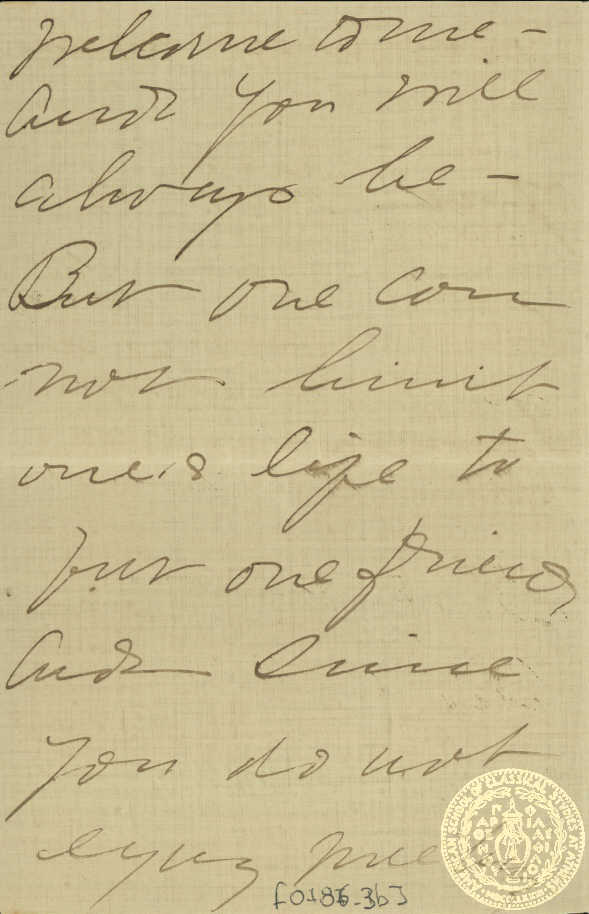 welcome to me –
And you will
always be –
But one can
not limit
one's life to
but one friend,
And since
you do not
enjoy
SCHOOL OF CLASSICAL STUDIES AT